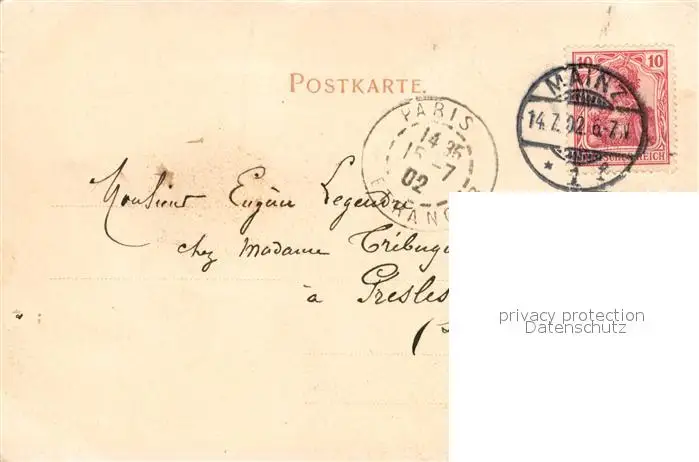 10 10
POSTKARTE.
MAINZ
14.7.02 6-7.V
* 1 *
PARIS
14 35
15-7
02
ETRANGER
Monsieur Eugène Legendre
chez Madame
à Presles
privacy protection
Datenschutz